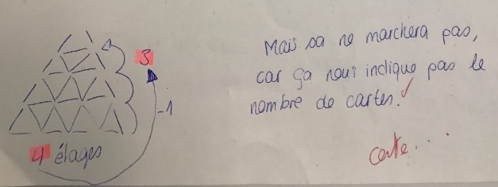 3
-1
4 étages
Mais sa ne marchera pas,
car ça nous indique pas le
nombre de cartes.
certe...